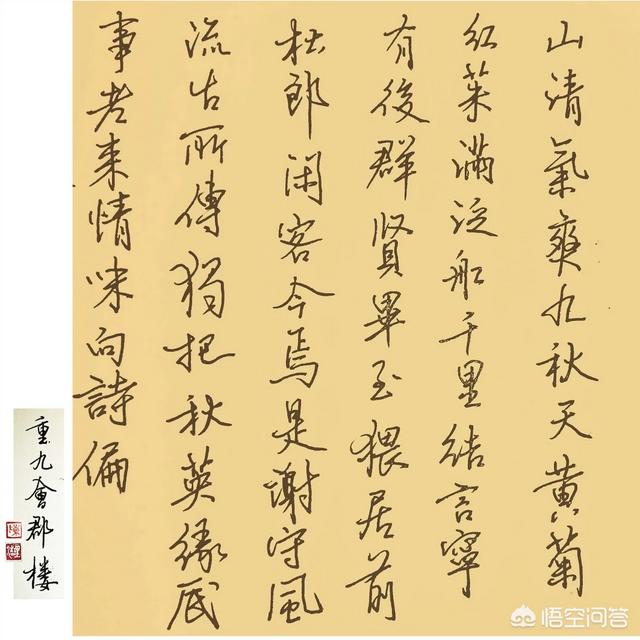 山清氣爽九秋天黄菊
红茱滿泛船千里结言寧
有後群賢畢至猥居前
杜郎闲客今焉是謝守風
流古所傳獨把秋英缘底
事老来情味向詩偏
重九會郡楼
悟空问答